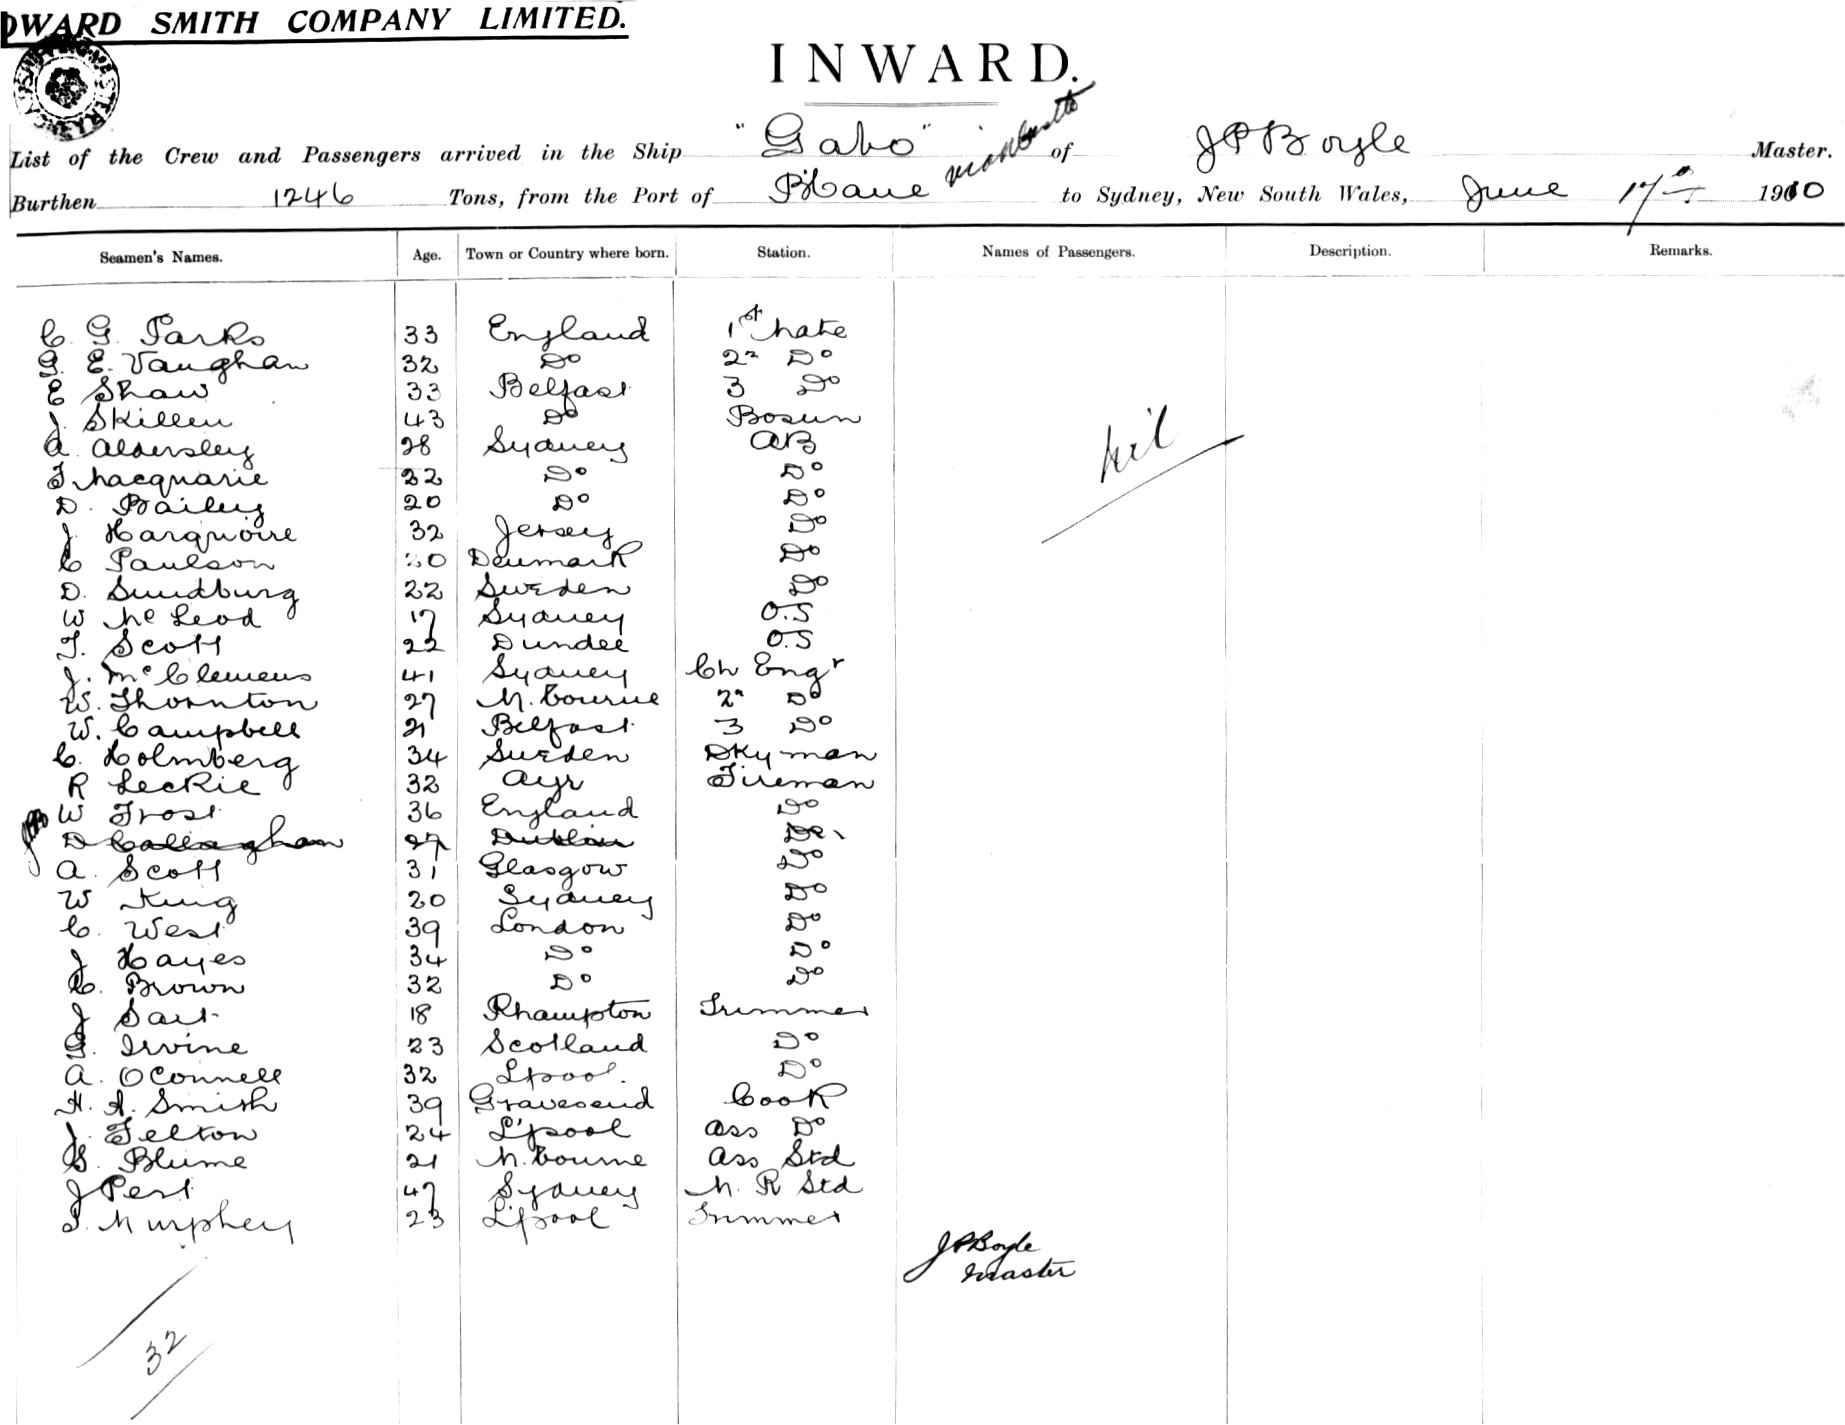 OWARD SMITH COMPANY LIMITED.
INWARD.
List of the Crew and Passengers arrived in the Ship "Gabo" of J P Boyle Master.
Burthen 1246 Tons, from the Port of B'bane to Sydney, New South Wales, June 17th 1910
Seamen's Names. Age. Town or Country where born. Station. Names of Passengers. Description. Remarks.
C. G. Parks 33 England 1st Mate
G. E. Vaughan 32 Do 2n Do
E Shaw 33 Belfast 3 Do
J. Skillen 43 Do Bosun
A. Aldersley 28 Sydney AB
nil
T Macquarie 22 Do Do
D. Bailey 20 Do Do
J. Harquoire 32 Jersey Do
C Paulson 30 Denmark Do
D. Sundburg 22 Sweden Do
W McLeod 17 Sydney O.S
T. Scott 22 Dundee O.S
J. McClemens 41 Sydney Ch Engr
W. Thornton 27 M.bourne 2n Do
W. Campbell 21 Belfast 3 Do
C. Holmberg 34 Sweden Dkyman
R Leckie 32 Ayr Fireman
W Frost 36 England Do
D Callaghan 27 Dublin Do
A. Scott 31 Glasgow Do
W King 20 Sydney Do
C. West 39 London Do
J Hayes 34 Do Do
C. Brown 32 Do Do
J Sait 18 Rhampton Trimmer
G. Irvine 23 Scotland Do
A. OConnell 32 Lpool. Do
H. A. Smith 39 Gravesend Cook
J. Felton 24 L'pool Ass Do
G. Blume 21 M.bourne Ass Std
J Pert 47 Sydney M. R Std
T. Murphey 23 L'pool Trimmer
JPBoyle
Master
32